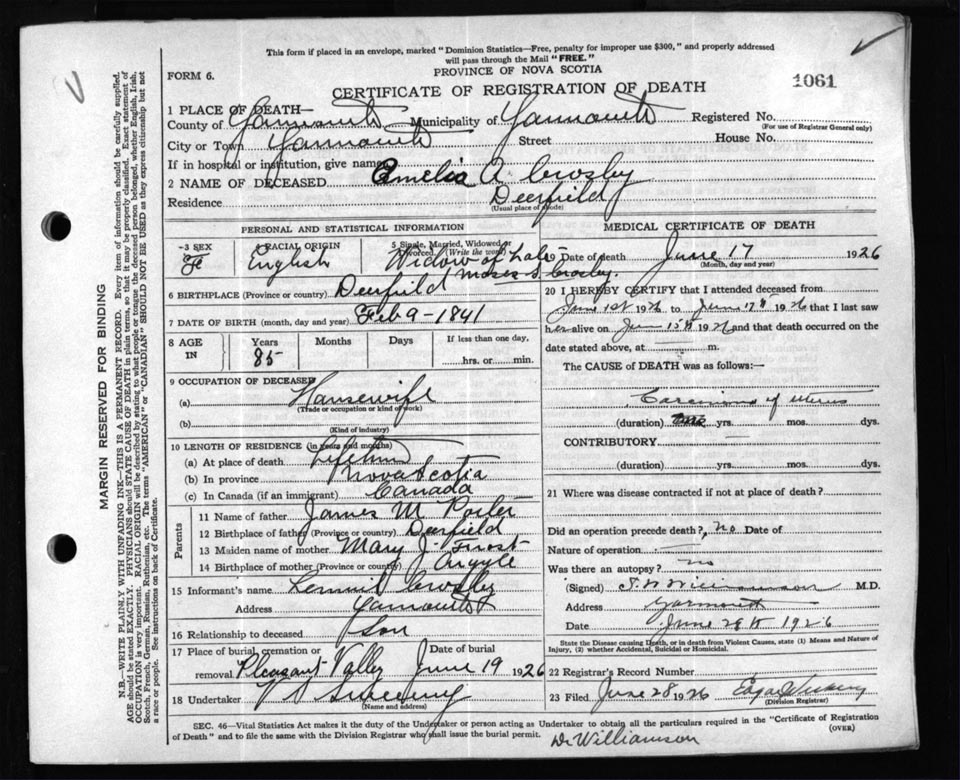 This form if placed in an envelope, marked "Dominion Statistics—Free, penalty for improper use $300," and properly addressed
will pass through the Mail "FREE."
FORM 6.
PROVINCE OF NOVA SCOTIA
CERTIFICATE OF REGISTRATION OF DEATH
1061
MARGIN RESERVED FOR BINDING
N.B.—WRITE PLAINLY WITH UNFADING INK—THIS IS A PERMANENT RECORD. Every item of information should be carefully supplied.
AGE should be stated EXACTLY. PHYSICIANS should STATE CAUSE OF DEATH in plain terms, so that it may be properly classified. Exact statement of
OCCUPATION is very important. RACIAL ORIGIN will be described by stating to what people or tongue the deceased person belonged, whether English, Irish,
Scotch, French, German, Russian, Ruthenian, etc. The terms "AMERICAN" or "CANADIAN" SHOULD NOT BE USED as they express citizenship but not
a race or people. See instructions on back of Certificate.
1 PLACE OF DEATH—
County of Yarmouth Municipality of Yarmouth Registered No.
(For use of Registrar General only)
City or Town Yarmouth Street House No.
If in hospital or institution, give name
2 NAME OF DECEASED Amelia A. Crosby
Residence Deerfield
(Usual place of abode)
PERSONAL AND STATISTICAL INFORMATION
3 SEX
Fe
4 RACIAL ORIGIN
English
5 Single, Married, Widowed or
Divorced. (Write the word)
Widow of Late
Moses S. Crosby.
6 BIRTHPLACE (Province or country) Deerfield
7 DATE OF BIRTH (month, day and year) Feb 9 - 1841
8 AGE
IN
Years
85
Months
Days
If less than one day,
hrs. or min.
9 OCCUPATION OF DECEASED
(a) Housewife
(Trade or occupation or kind of work)
(b)
(Kind of industry)
10 LENGTH OF RESIDENCE (in years and months)
(a) At place of death Lifetime
(b) In province Nova Scotia
(c) In Canada (if an immigrant) Canada
Parents
11 Name of father James M Porter
12 Birthplace of father (Province or country) Deerfield
13 Maiden name of mother Mary J. Frost
14 Birthplace of mother (Province or country) Argyle
15 Informant's name Lemuel Crosby
Address Yarmouth
16 Relationship to deceased Son
17 Place of burial, cremation or
removal Pleasant Valley
Date of burial
June 19 1926
18 Undertaker Sweeny
(Name and address)
MEDICAL CERTIFICATE OF DEATH
19 Date of death June 17 1926
(Month, day and year)
20 I HEREBY CERTIFY that I attended deceased from
June 1st 1926 to June 17th 1926 that I last saw
her alive on June 15th 1926 and that death occurred on the
date stated above, at m.
The CAUSE of DEATH was as follows:—
Carcinoma of uterus
(duration) yrs. mos. dys.
CONTRIBUTORY
(duration) yrs. mos. dys.
21 Where was disease contracted if not at place of death?
Did an operation precede death? no Date of
Nature of operation
Was there an autopsy? no
(Signed) Williamson M.D.
Address Yarmouth
Date June 28th 1926
State the Disease causing Death, or in death from Violent Causes, state (1) Means and Nature of
Injury, (2) whether Accidental, Suicidal or Homicidal.
22 Registrar's Record Number
23 Filed June 28 1926
(Division Registrar)
SEC. 46—Vital Statistics Act makes it the duty of the Undertaker or person acting as Undertaker to obtain all the particulars required in the "Certificate of Registration
of Death" and to file the same with the Division Registrar who shall issue the burial permit.
(OVER)
Dr Williamson